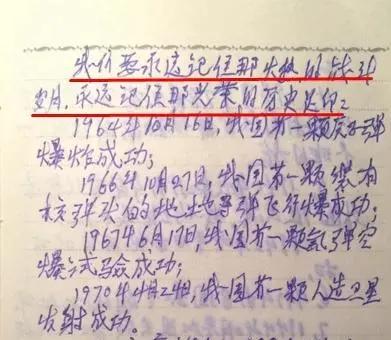 我们要永远记住那火热的战斗
岁月,永远记住那光荣的历史足印:
1964年10月16日,我国第一颗原子弹
爆炸成功;
1966年10月27日,我国第一颗装有
核弹头的地地导弹飞行爆成功;
1967年6月17日,我国第一颗氢弹空
爆试验成功;
1970年4月24日,我国第一颗人造卫星
发射成功。